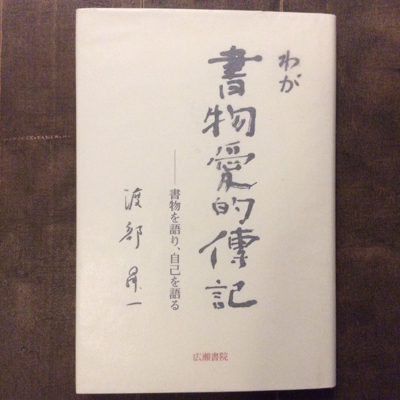 わが
書物愛的傳記
――書物を語り、自己を語る
渡部昇一
広瀬書院